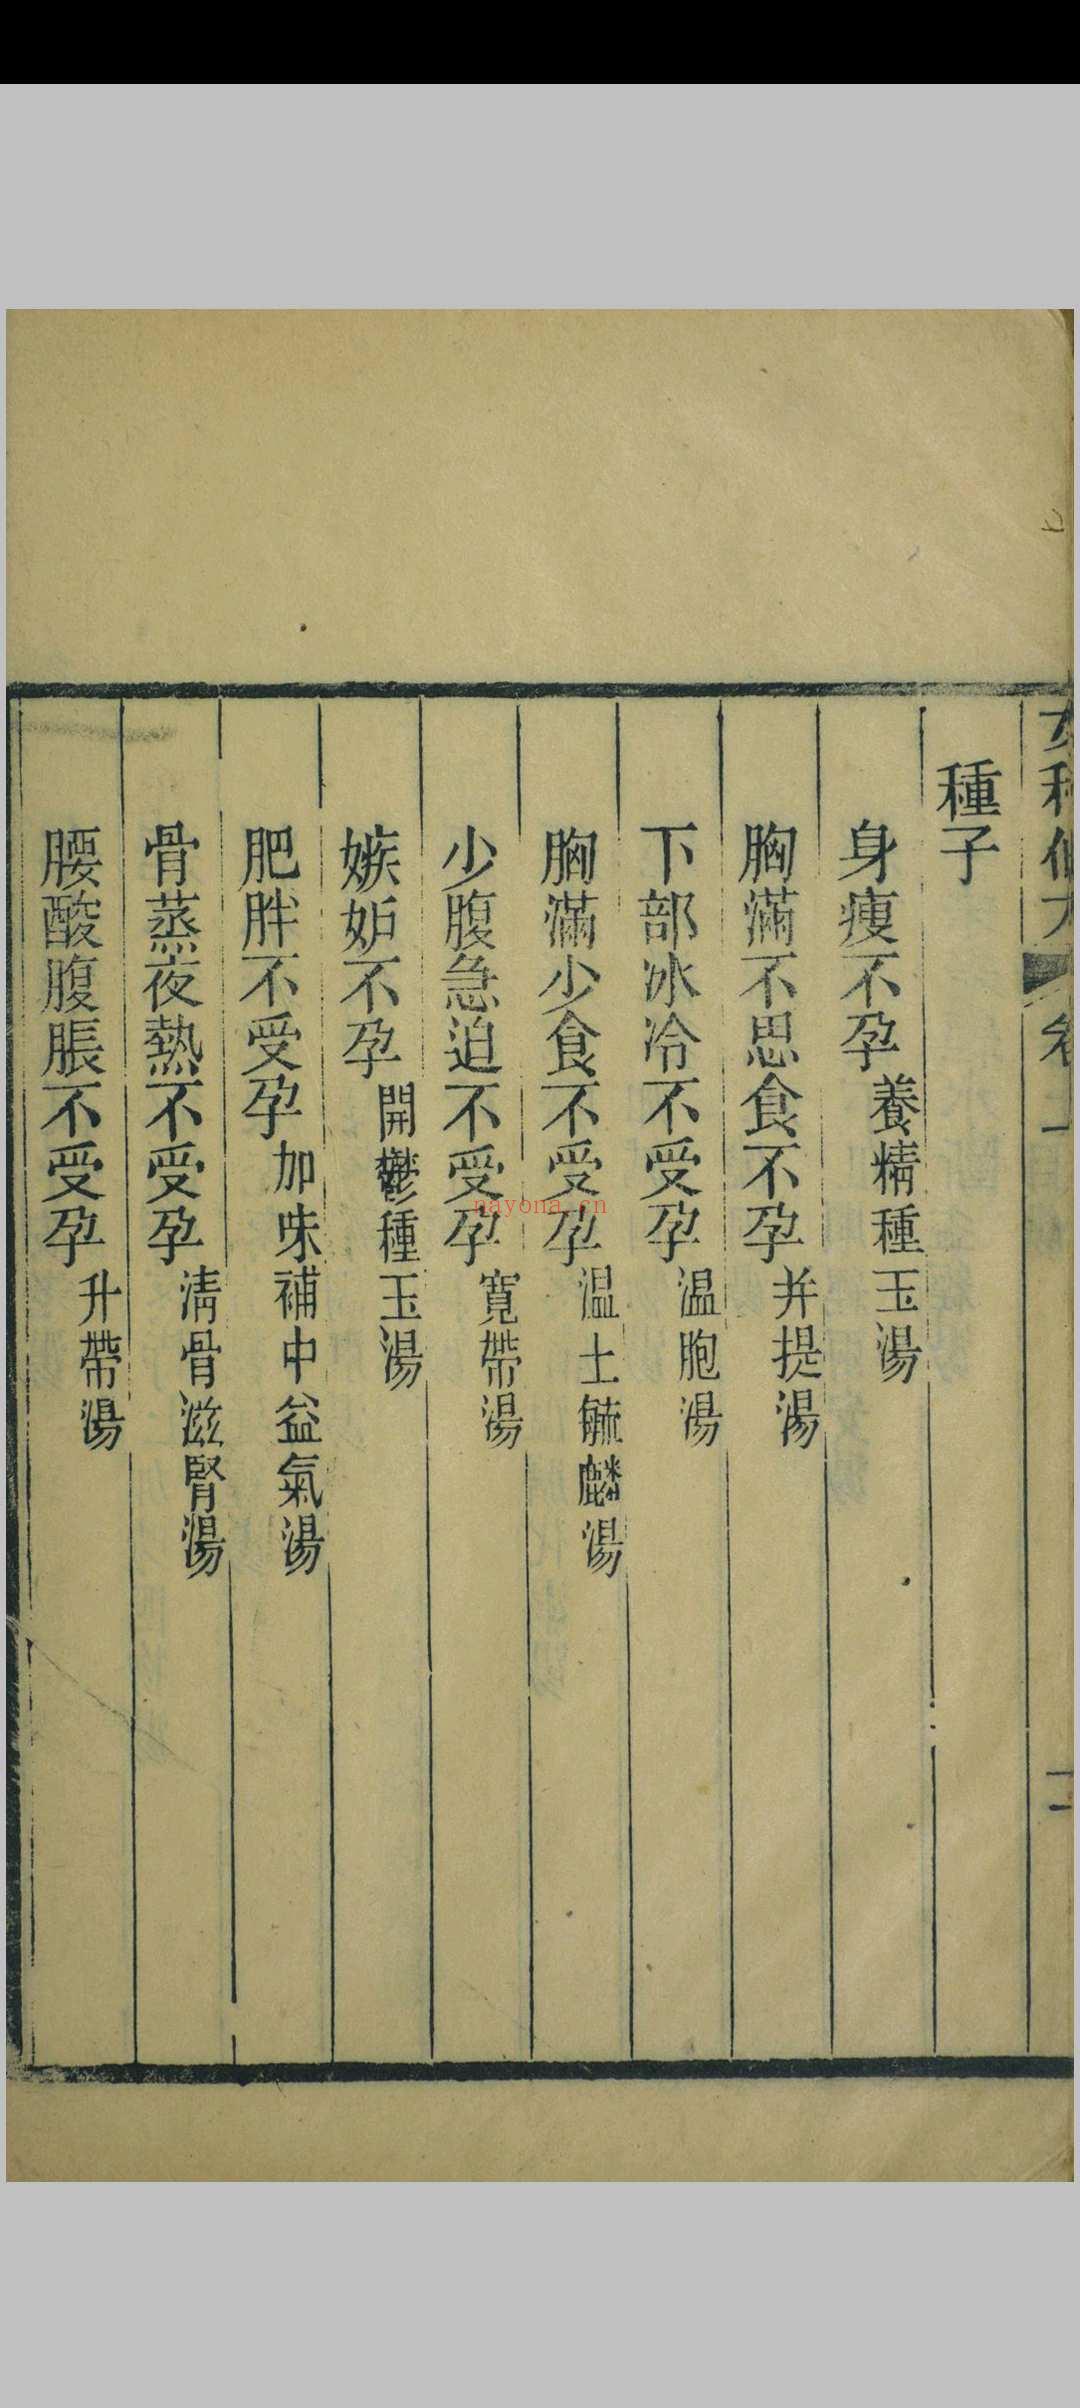 女科仙方 卷一
二
種子
身瘦不孕 養精種玉湯
胸滿不思食不孕 并提湯
下部冰冷不受孕 温胞湯
胸滿少食不受孕 温土毓麟湯
少腹急迫不受孕 寬帶湯
嫉妒不孕 開鬱種玉湯
肥胖不受孕 加味補中益氣湯
骨蒸夜熱不受孕 清骨滋腎湯
腰酸腹脹不受孕 升帶湯
nayona.cn